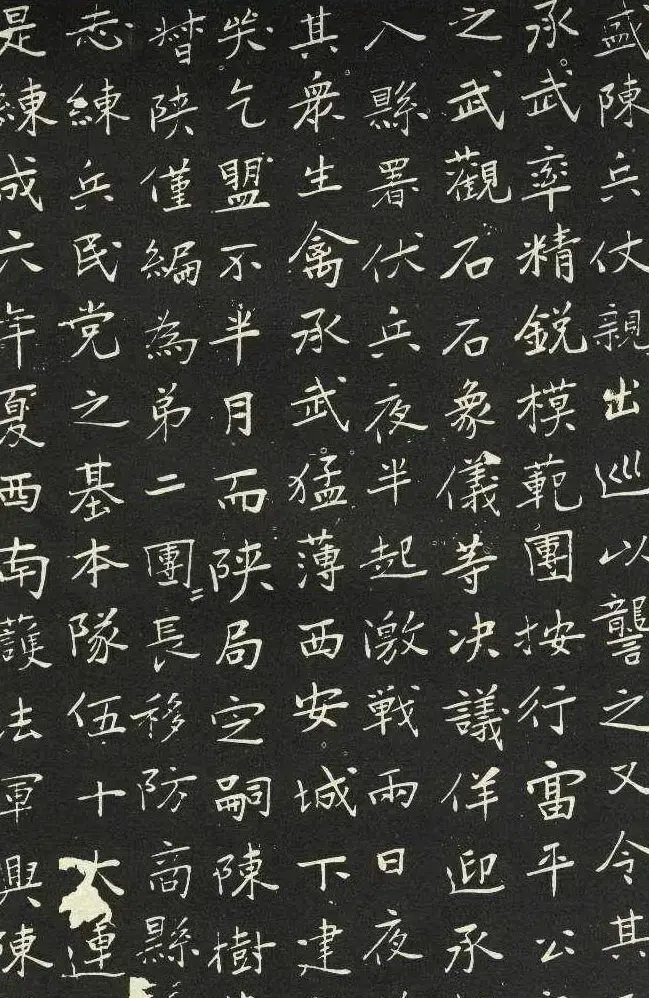 盛陳兵仗親出巡以讋之又令其
承武率精銳模範團按行富平公
之武觀石石象儀等決議佯迎承
入縣署伏兵夜半起激戰兩日夜
其衆生禽承武猛薄西安城下建
矣乞盟不半月而陝局定嗣陳樹
督陝僅編為弟二團團長移防商縣
志練兵民党之基本隊伍十大運
是練成六年夏西南護法軍興陳